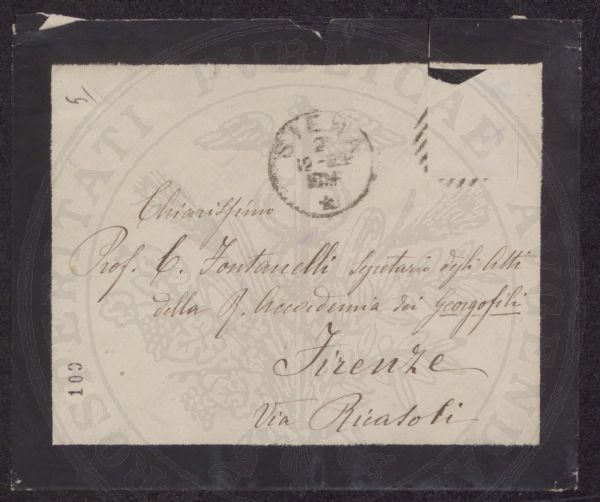 SIENA
Chiarissimo
Prof. C. Fontanelli Segretario degli Atti
della R. Accademia dei Georgofili
Firenze
Via Ricasoli
100
PROSPERITATI PUBLICAE